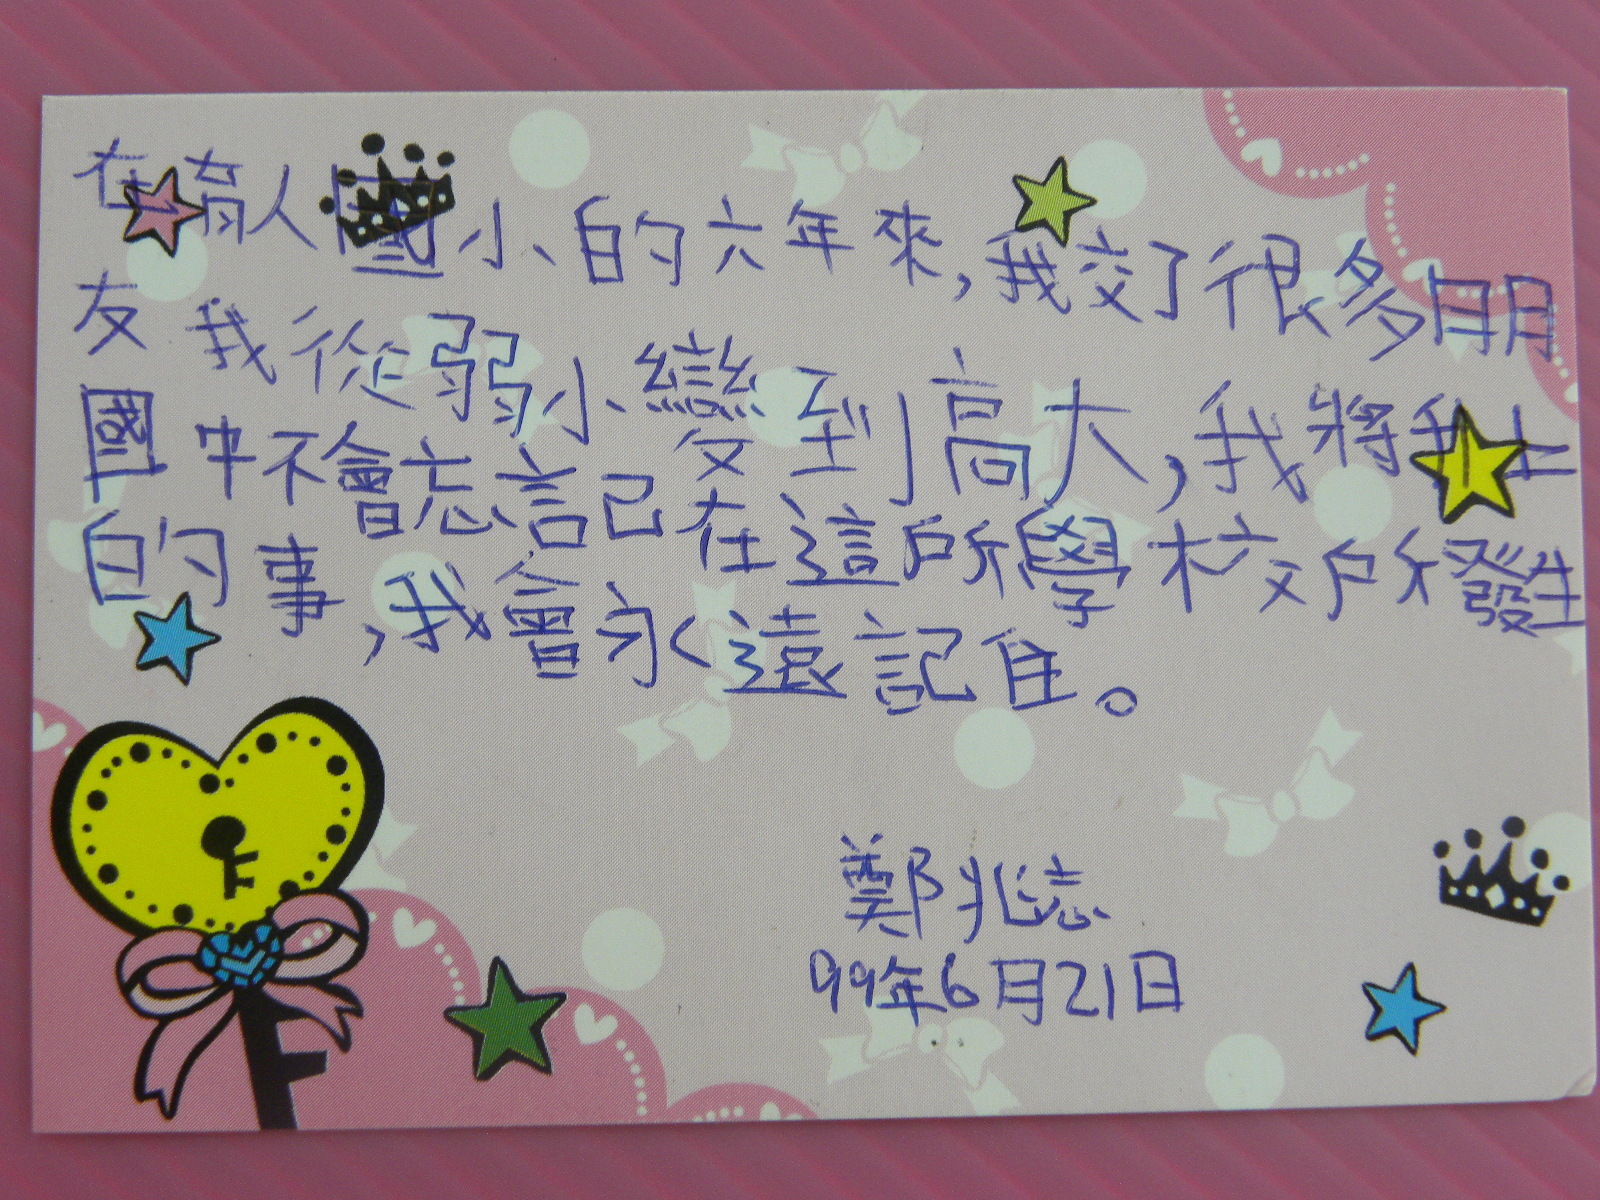 在育人國小的六年來，我交了很多朋
友我從弱小變到高大，我將我上
國中不會忘記在這所學校所發生
的事，我會永遠記住。
鄭兆志
99年6月21日